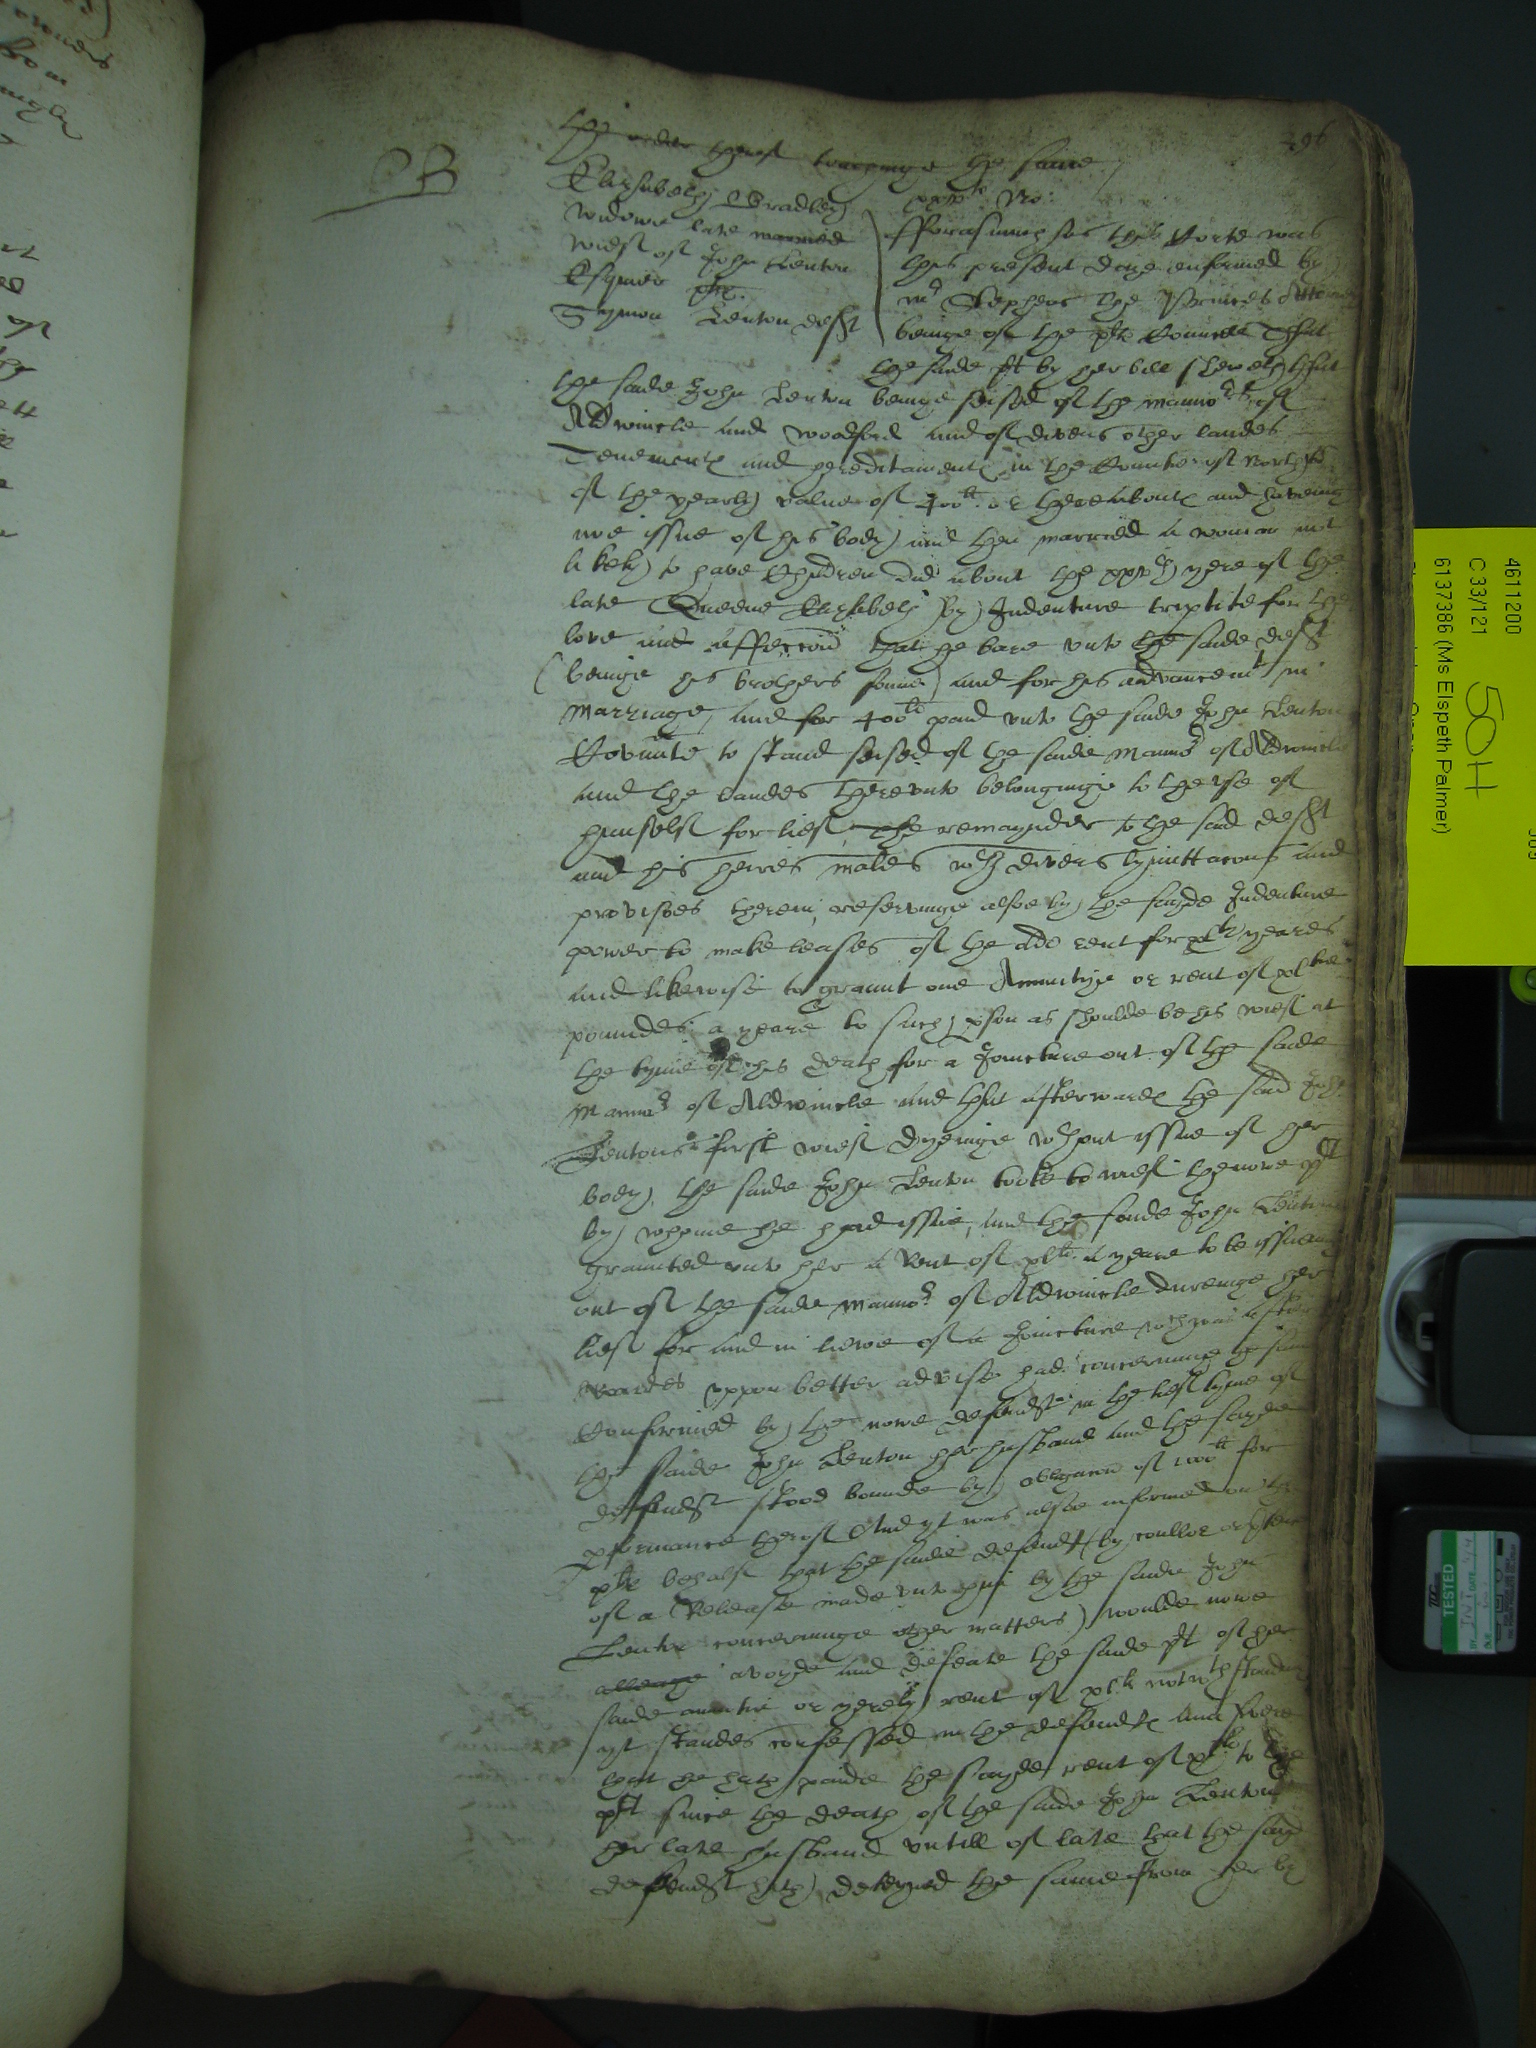 296
B
the order therof towchinge the same
Elizabeth Bradley
widowe late
wief of John Lenton
Esquier plt.
Symon Lenton deft
xxvto No:
fforasmuch as this Corte was
this present daye enformed by
mr Stephens the Princes Attorney
beinge of the plts Councell That
the saide plt by her bill sheweth that
the saide John Lenton beinge seised of the mannors of
Aldwincle and woodford and of divers other landes
Tenements and hereditaments in the Countie of North
of the yearly value of 400li or thereabouts and haveing
noe issue of his body and then married a woman not
likely to have Children did about the yere of the
late Queene Elizabeth by Indenture triptite for the
love and affeccon that he bare unto the saide deft
(beinge his brothers sonne) and for his advancemt in
marriage, and for 400li paid unto the saide John Lenton
Covnate to stand seised of the saide mannor of Aldwincle
and the landes therevnto belonginge to the vse of
himself for lief, The remaynder to the said deft
and his heires males wth divers lymittacons and
provisoes therein, reservinge alsoe by the sayde Indenture
power to make leases of the old rent for yeares
and likewise to graunt one Annuitye or rent of xl
poundes a yeare to such pson as shoulde be his wief at
the tyme of his death for a Joincture out of the saide
Mannor of Aldwincle And that afterwards the said John
Lentons first wief dyeinge wthout issue of her
body, the saide John Lenton tooke to wief the nowe plt
by whome he had issue, And the saide John Lenton
graunted unto her a Rent of xlli a yeare to be issueing
out of the saide mannor of Aldwincle dureinge her
lief for and in liewe of a Joincture wch was after
wardes vppon better advise had concerninge the same
Confirmed by the nowe defendt in the lief tyme of
the saide John Lenton her husband and the sayde
defendt stood bounde by obligacon of for
pformance therof And yt was alsoe informed on the
plts behalf that the saide defendt (by coullor
of a Release made unto him by the saide John
Lenton concerninge other matters) woulde nowe
avoyde and defeate the saide plt of her
saide or yerely rent of xlli notwthstanding
yt standes confessed in the defendts
that he hath paide the sayde rent of xlli to the
plt since the death of the saide John Lenton
her late husband untill of late that the said
defendt hath deteyned the same from her by
4611200
C 33/121
50H
6137386 (Ms Elspeth Palmer)
TESTED